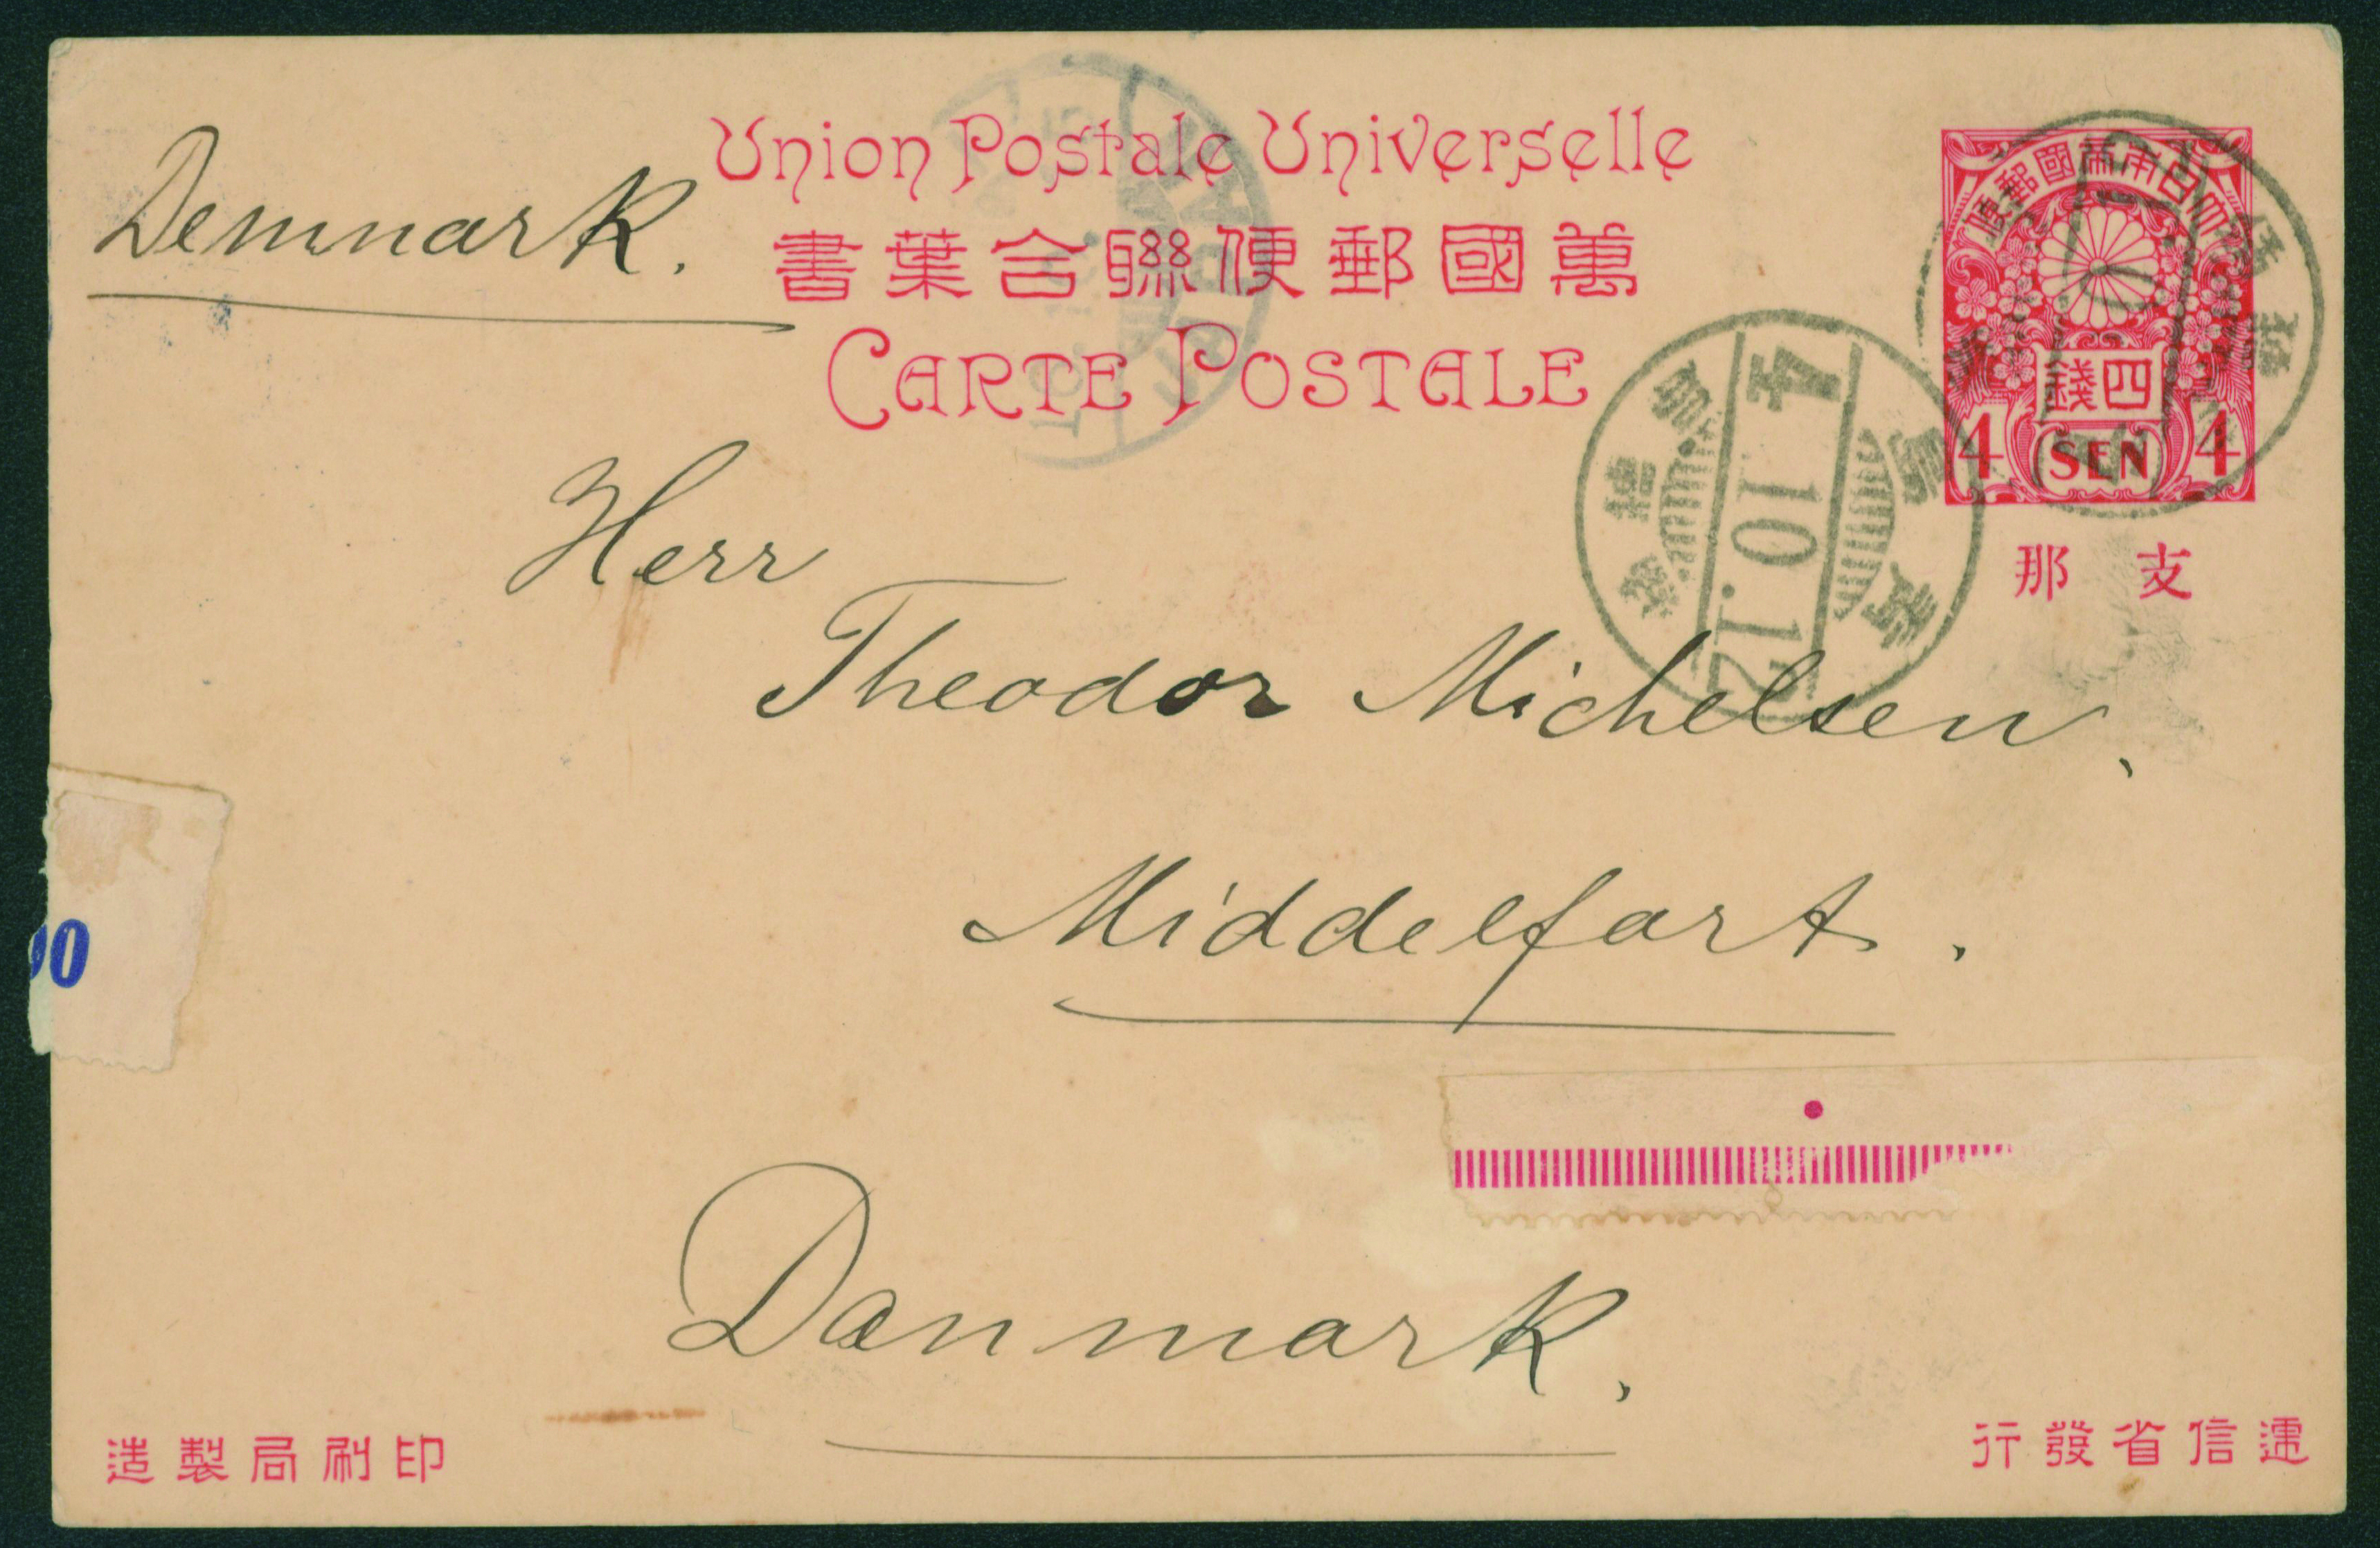 Union Postale Universelle
萬國郵便聯合葉書
CARTE POSTALE
Denmark.
大日本帝國郵便
四錢
4 SEN 4
支那
4.10.12
Herr
Theodor Michelsen,
Middelfart.
Danmark.
00
遞信省發行
印刷局製造